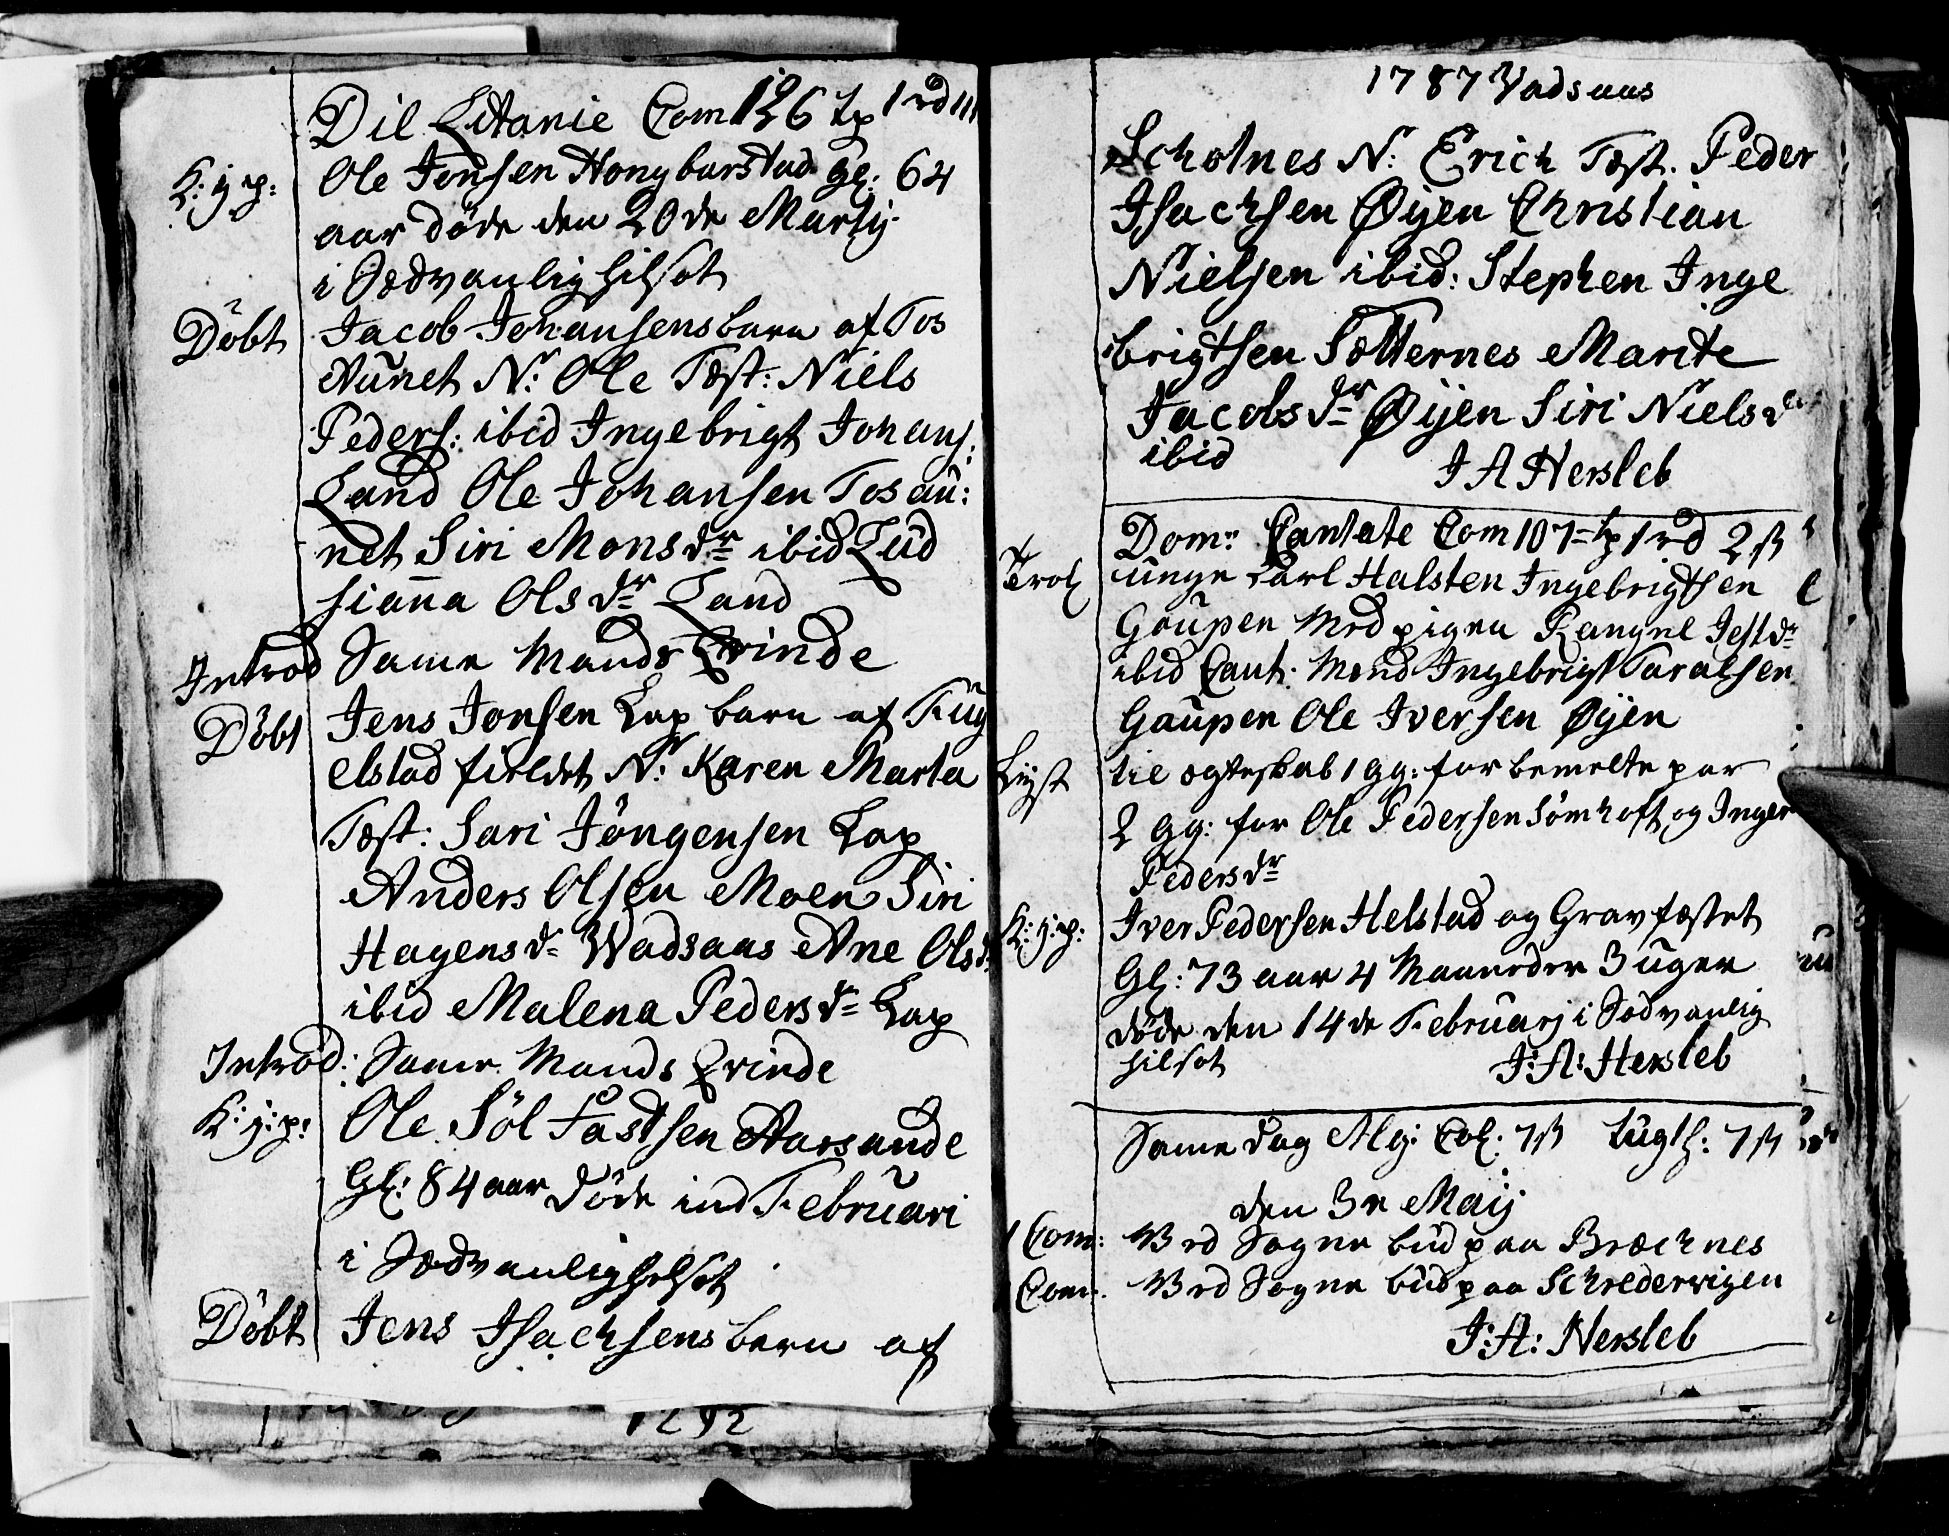 Dil Litanie Com 126 tp 1 rd
K: j: p: Ole Jonsen Hongbarstad gl: 64
aar døde den 20de Martij
i Sædvanlig hilsot
Döbt Jacob Johansens barn af Tos
Aunet N: Ole Test: Niels
Peders: ibid Ingebrigt Johans:
Land Ole Johansen Tosau:
net Siri Monsdr ibid Lud
sianna Olsdr Land
Introd Samme Mands Qvinde
Döbt Jens Jonsen Lap barn af Fug
elstad fieldet N: Karen Marta
Test: Sari Jöngensen Lap
Anders Olsen Moen Siri
Hagensdr Wadsaas Ane Olsdr
ibid Malena Pedersdr Lap
Introd: Samme Mands Qvinde
K: j: p: Ole Söl Fastsen Aarsande
Gl: 84 aar døde ind Februari
i Sædvanlig hilsot
Döbt Jens Isachsens barn af
1292
1787 Vadsaas
Scholnes N: Erich Test. Peder
Isachsen Øijen Christian
Nielsen ibid: Stephen Inge
brigtsen Sætternes Marite
Jacobsdr Øijen Siri Nielsdr
ibid
J A Hersleb
Domn: Cantate Com 107 tp 1 rd 2 ß
Trol unge Karl Halsten Ingebrigtsen
Gaupen Med pigen Rangnel Jestdr
ibid Caut: Mend Ingebrigt Taralsen
Gaupen Ole Iversen Øijen
Lyst til ægteskab 1 gg: for bemelte par
2 gg: for Ole Pedersen Sømhoft og Inger
Pedersdr
K: j: p: Iver Pedersen Helstad og Gravfæstet
Gl: 73 aar 4 Maaneder 3 uger
døde den 14de Februarj i Sædvanlig
hilsot
J: A: Hersleb
Samme dag Mg: Col: 7 ß tugth: 7 ß
den 3e Maij
1 Com: Ved Sogne bud paa Bræchnes
Com: Ved Sogne bud paa Schredervigen
J: A: Hersleb